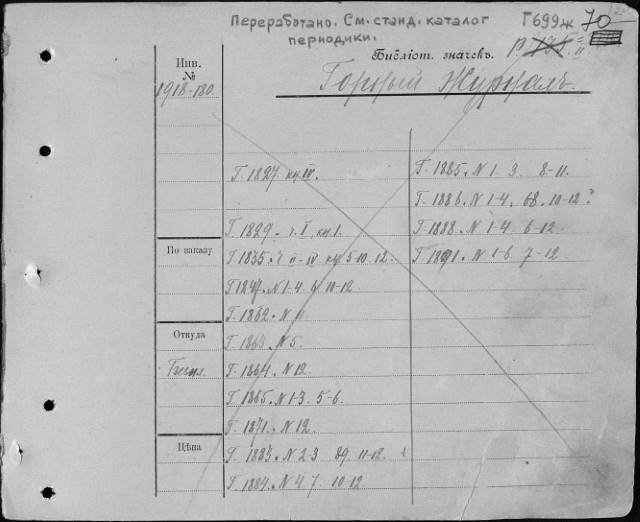 Переработано. См. станд. каталог периодики.
Г699ж
70
Библіот. значекъ.
Инв. №
1918-180
Горный Журналъ
Г. 1827 кн IV.
Г. 1829. ч. I, кн 1.
Г. 1835. ч II-IV кн 5-10. 12.
Г. 1862. N 11
Г. 1863. N 5.
Г. 1864. N 12.
Г. 1865. N 1-3. 5-6.
Г. 1871. N 12.
Г. 1883. N 2-3 11-12.
Г. 1884. N 4 7. 10-12.
Г. 1885. N 1 3. 8-11.
Г. 1886. N 1-4. 68. 10-12?
Г. 1888. N 1-4 6-12.
Г. 1891. N 1-6 7-12.
По заказу
Откуда
Цѣна